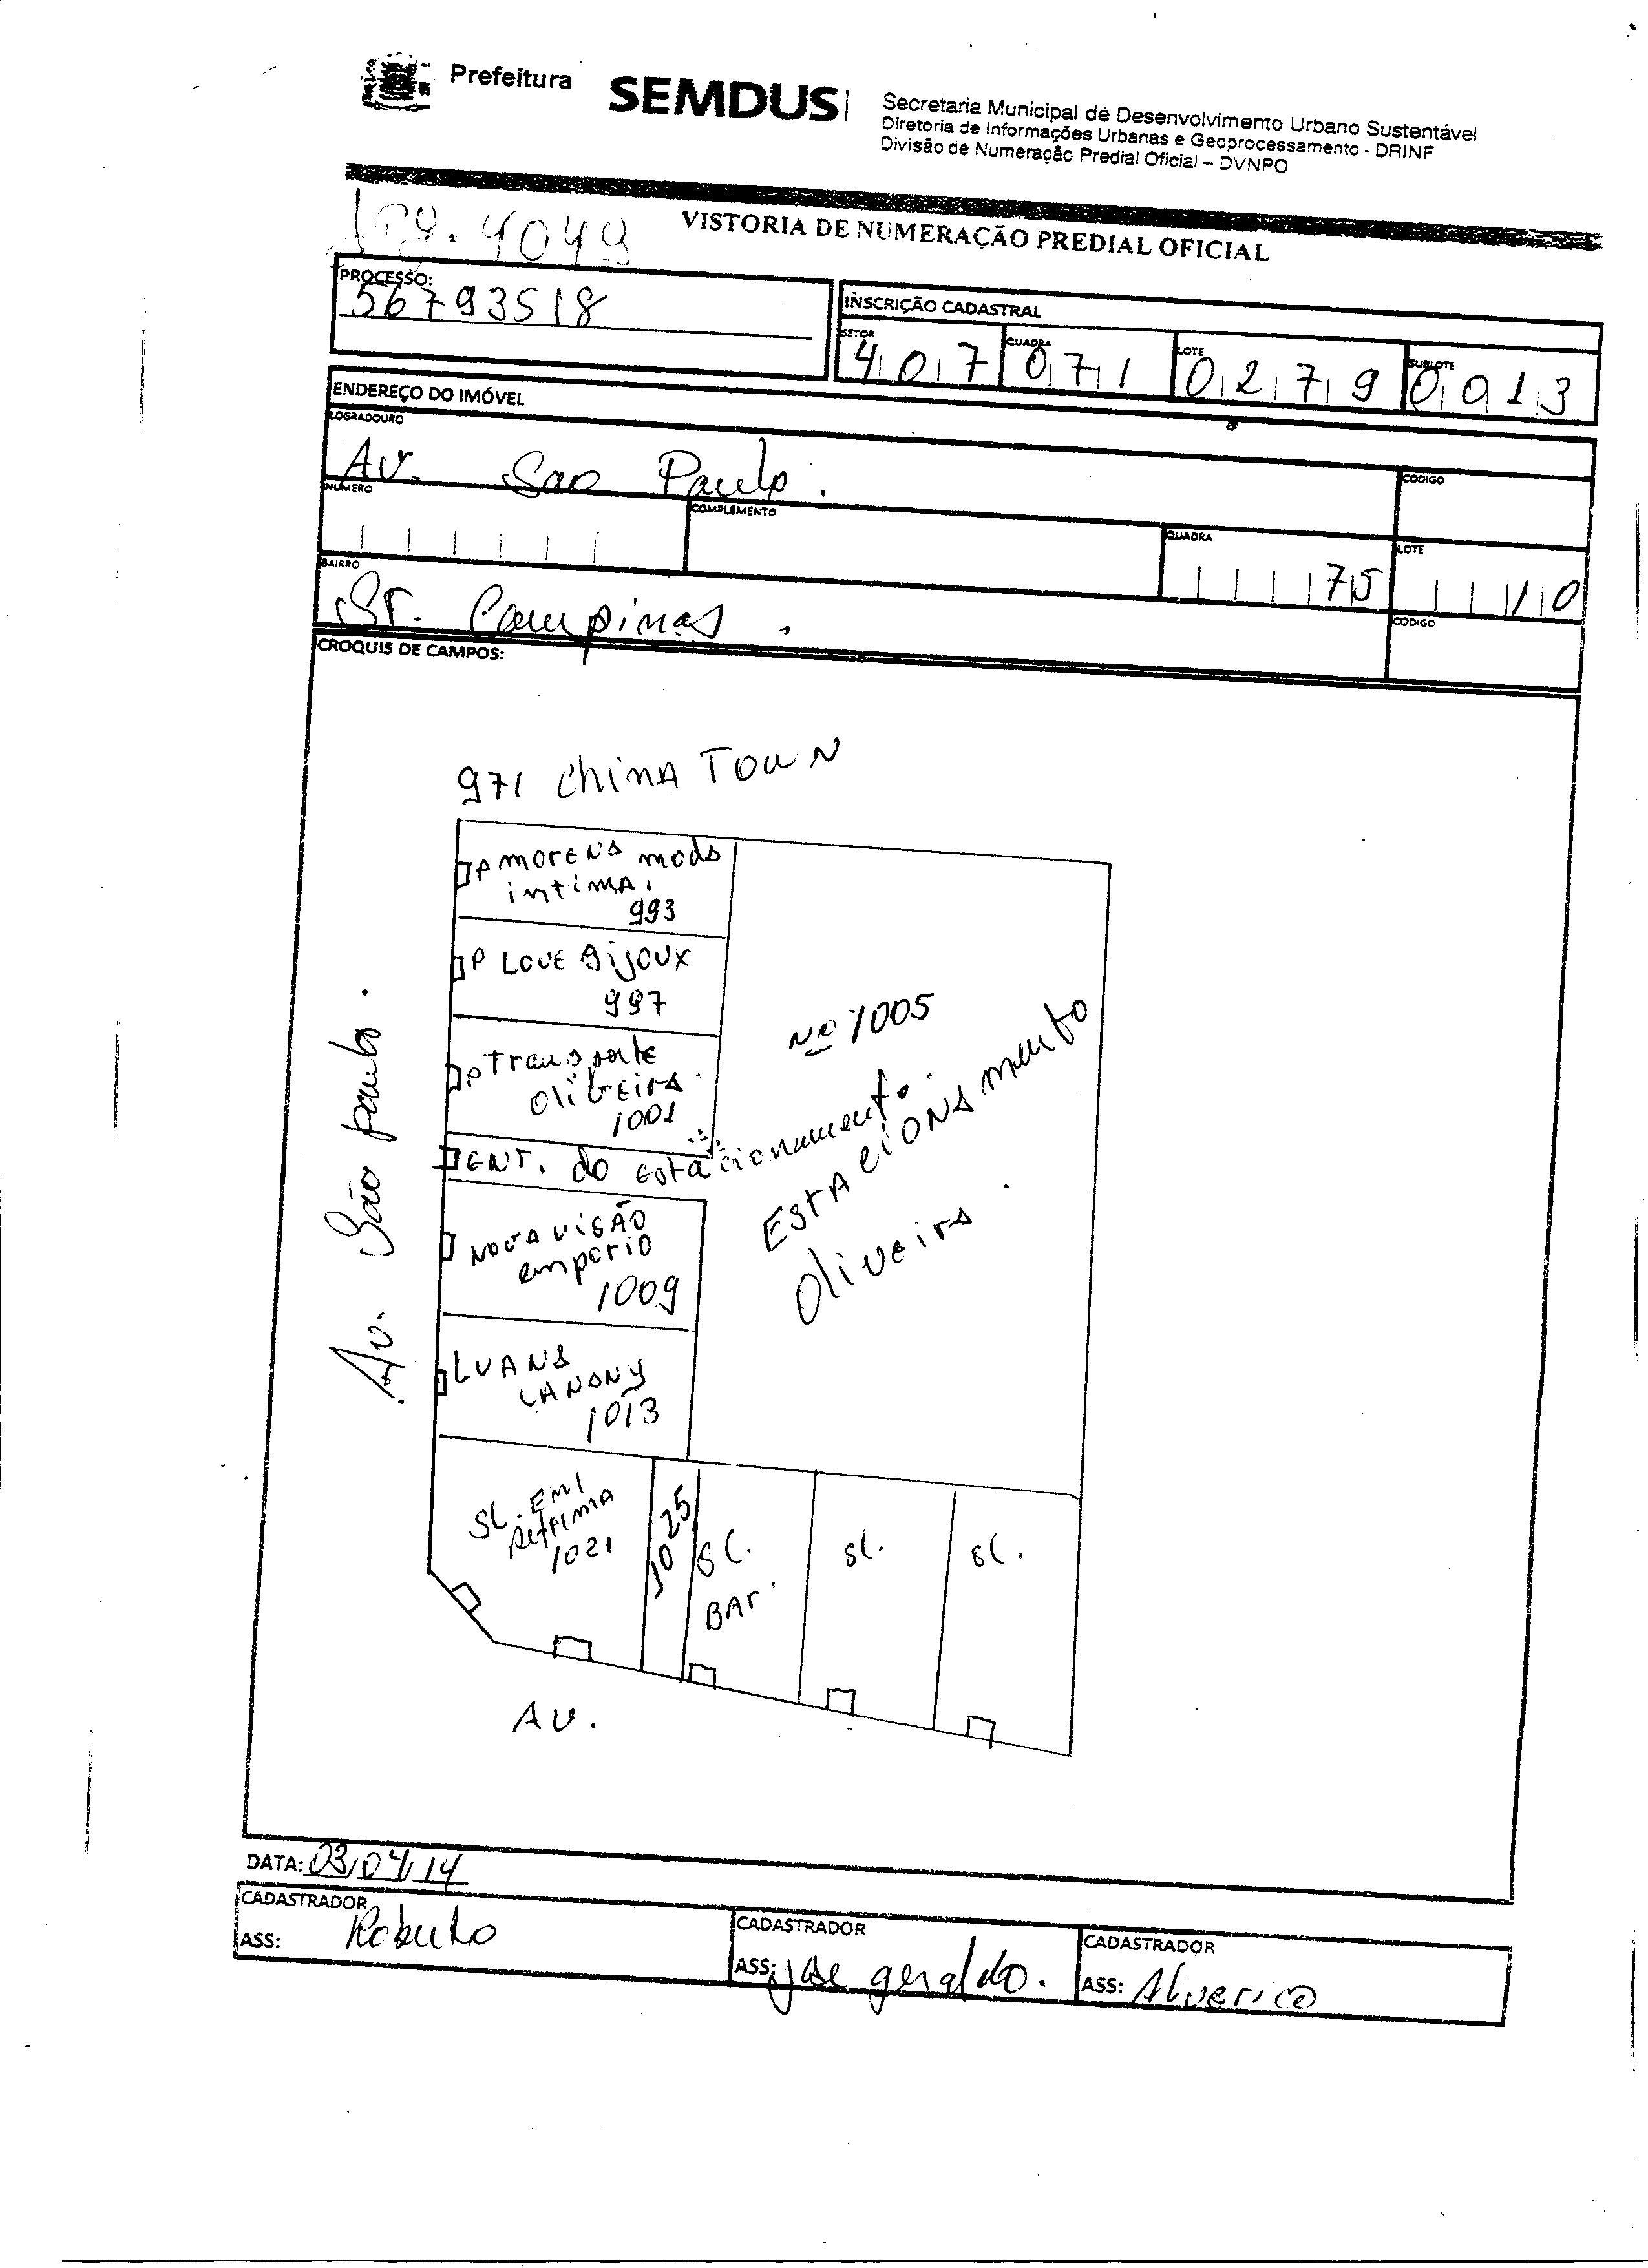 Prefeitura SEMDUS
Secretaria Municipal de Desenvolvimento Urbano Sustentável
Diretoria de Informações Urbanas e Geoprocessamento - DRINF
Divisão de Numeração Predial Oficial – DVNPO
4049
VISTORIA DE NUMERAÇÃO PREDIAL OFICIAL
PROCESSO:
56793518
INSCRIÇÃO CADASTRAL
SETOR QUADRA LOTE SUBLOTE
407 071 0279 0013
ENDEREÇO DO IMÓVEL
LOGRADOURO
Av. Sao Paulo.
CODIGO
NUMERO
COMPLEMENTO
QUADRA
75
LOTE
10
BAIRRO
St. Campinas.
CODIGO
CROQUIS DE CAMPOS:
971 China Town
P morena moda
intima.
993
P Love Bijoux
997
P Transporte
Oliveira.
1001
ENT. do estacionamento.
Nova Visão
emporio
1009
Luana
1013
Nº 1005
Estacionamento
Oliveira.
Av. São paulo.
SL.
1021
1025
SL.
BAr.
SL.
SL.
Av.
DATA: 03/04/14
CADASTRADOR
ASS: Roberto
CADASTRADOR
ASS: Jose geraldo.
CADASTRADOR
ASS: Alverico